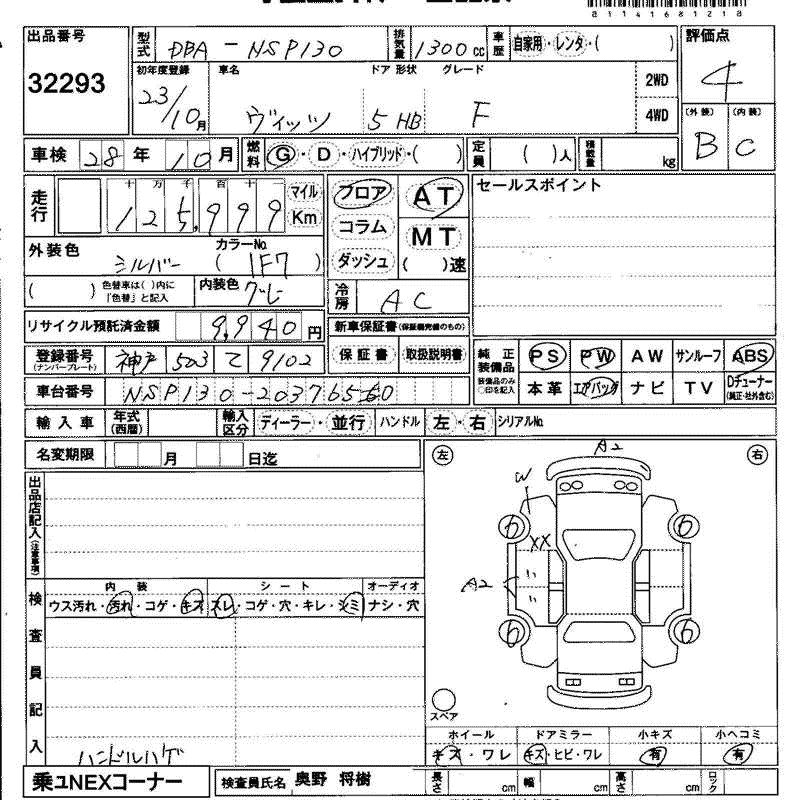 81141681218
出品番号
32293
型式 DBA-NSP130
排気量 1300cc
車歴 自家用・レンタ・( )
評価点
4
初年度登録
23/10月
車名
ヴィッツ
ドア 形状
5 HB
グレード
F
2WD
4WD
(外装) (内装)
B C
車検 28年10月
燃料 G・D・ハイブリッド・( )
定員 ( )人
積載量 kg
走行
十 万 千 百 十
125,999
マイル
Km
フロア
コラム
ダッシュ
AT
MT
( )速
セールスポイント
外装色
シルバー
カラーNo.
( 1F7 )
( )
色替車は( )内に
『色替』と記入
内装色
グレー
冷房 AC
リサイクル預託済金額 9,940円
新車保証書(保証継続のもの)
保証書 取扱説明書
登録番号
(ナンバープレート)
神戸 503 て 9102
純正装備品
装備品のみ○印を記入
PS PW AW サンルーフ ABS
本革 エアバッグ ナビ TV Dチューナー
(純正・社外含む)
車台番号 NSP130-20376560
輸入車
年式
(西暦)
輸入区分 ディーラー・並行
ハンドル 左・右
シリアルNo.
名変期限 月 日迄
左 右
A2
W
XX
A2
出品店記入(注意事項)
検査員記入
内装 シート オーディオ
ウス汚れ・汚れ・コゲ・キズ スレ・コゲ・穴・キレ・シミ ナシ・穴
ハンドルハゲ
スペア
ホイール ドアミラー 小キズ 小ヘコミ
キズ・ワレ キズ・ヒビ・ワレ 有 有
乗ユNEXコーナー
検査員氏名 奥野 将樹
長さ cm 幅 cm 高さ cm ロック